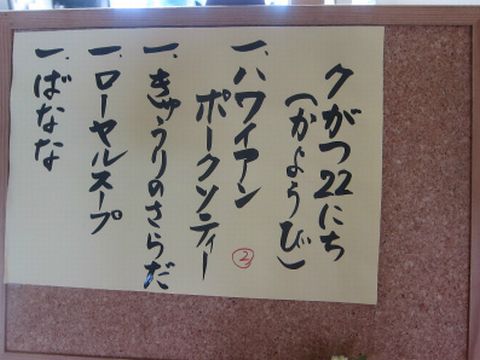 クがつ22にち
(かようび)
一、ハワイアン
ポークソティー
②
一、きゅうりのさらだ
一、ローヤルスープ
一、ばなな